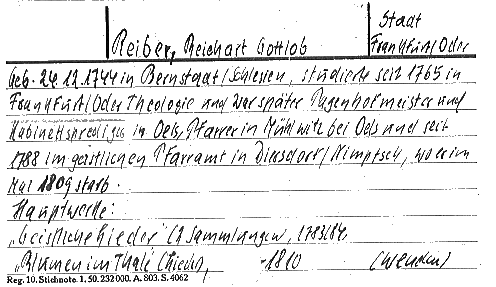 Stadt
Reiber, Reichart Gottlob Frankfurt/Oder
Geb. 24.12.1744 in Bernstadt/Schlesien, studierte seit 1765 in
Frankfurt/Oder Theologie und war später Pagenhofmeister und
Kabinettsprediger in Oels, Pfarrer in Mühlwitz bei Oels und seit
1788 im geistlichen Pfarramt in Diersdorf/Nimptsch, wo er im
Mai 1809 starb.
Hauptwerke:
"Geistliche Lieder" (2 Sammlungen, 1783/84.
"Blumen im Thale (Lieder), -1810 (wenden)
Reg. 10. Stichnote. 1. 50. 232 000. A. 803. S. 4062